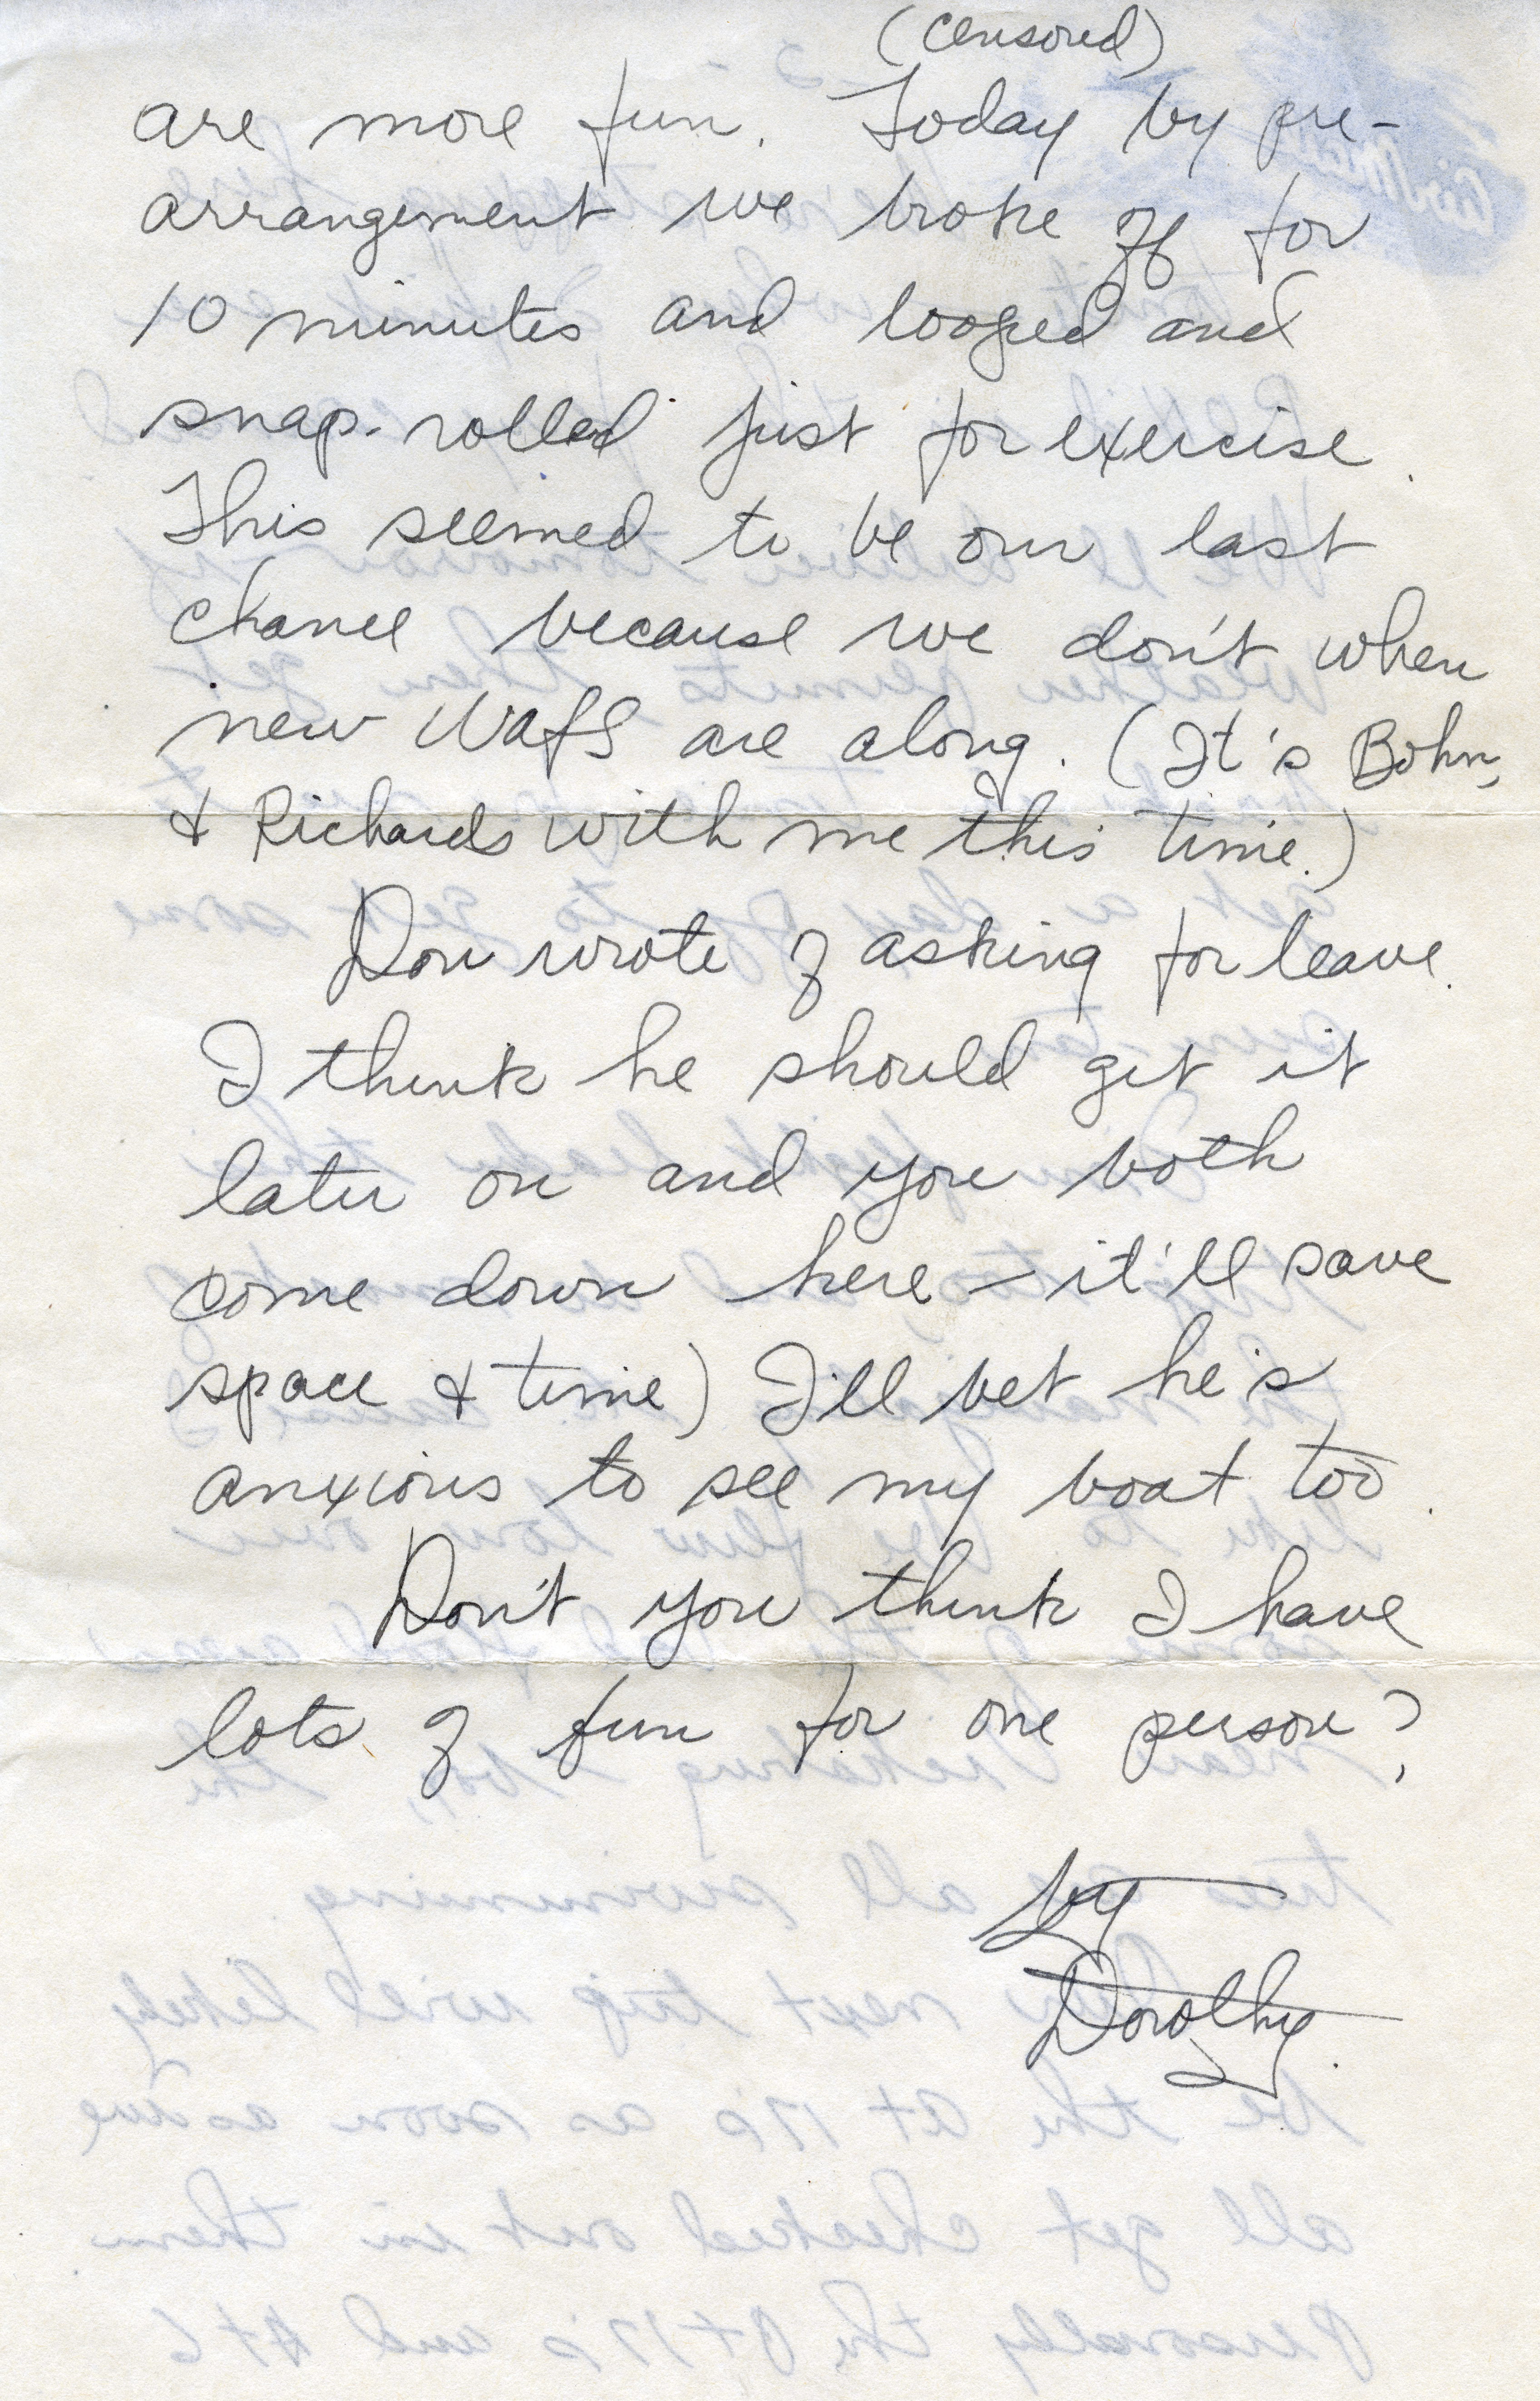 (censored)
are more fun. Today by pre-
arrangement we broke off for
10 minutes and looped and
snap-rolled just for exercise.
This seemed to be our last
chance because we don't when
new WAFS are along. (It's Bohn,
& Richards with me this time.)
Don wrote of asking for leave.
I think he should get it
later on and you both
come down here – it'll save
space & time) I'll bet he's
anxious to see my boat too.
Don't you think I have
lots of fun for one person?
by
Dorothy.